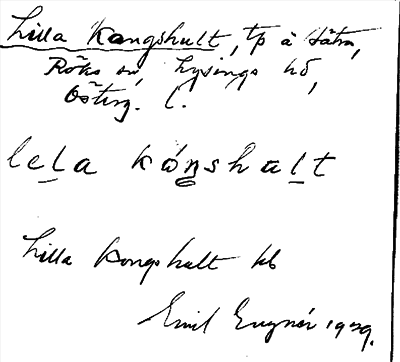 Lilla Kongshult, tp å Sätra,
Röks sn, Lysings hd,
Österg. l.
lela kóngshalt
Lilla Kongshult kb
Emil Eugnér 1929.